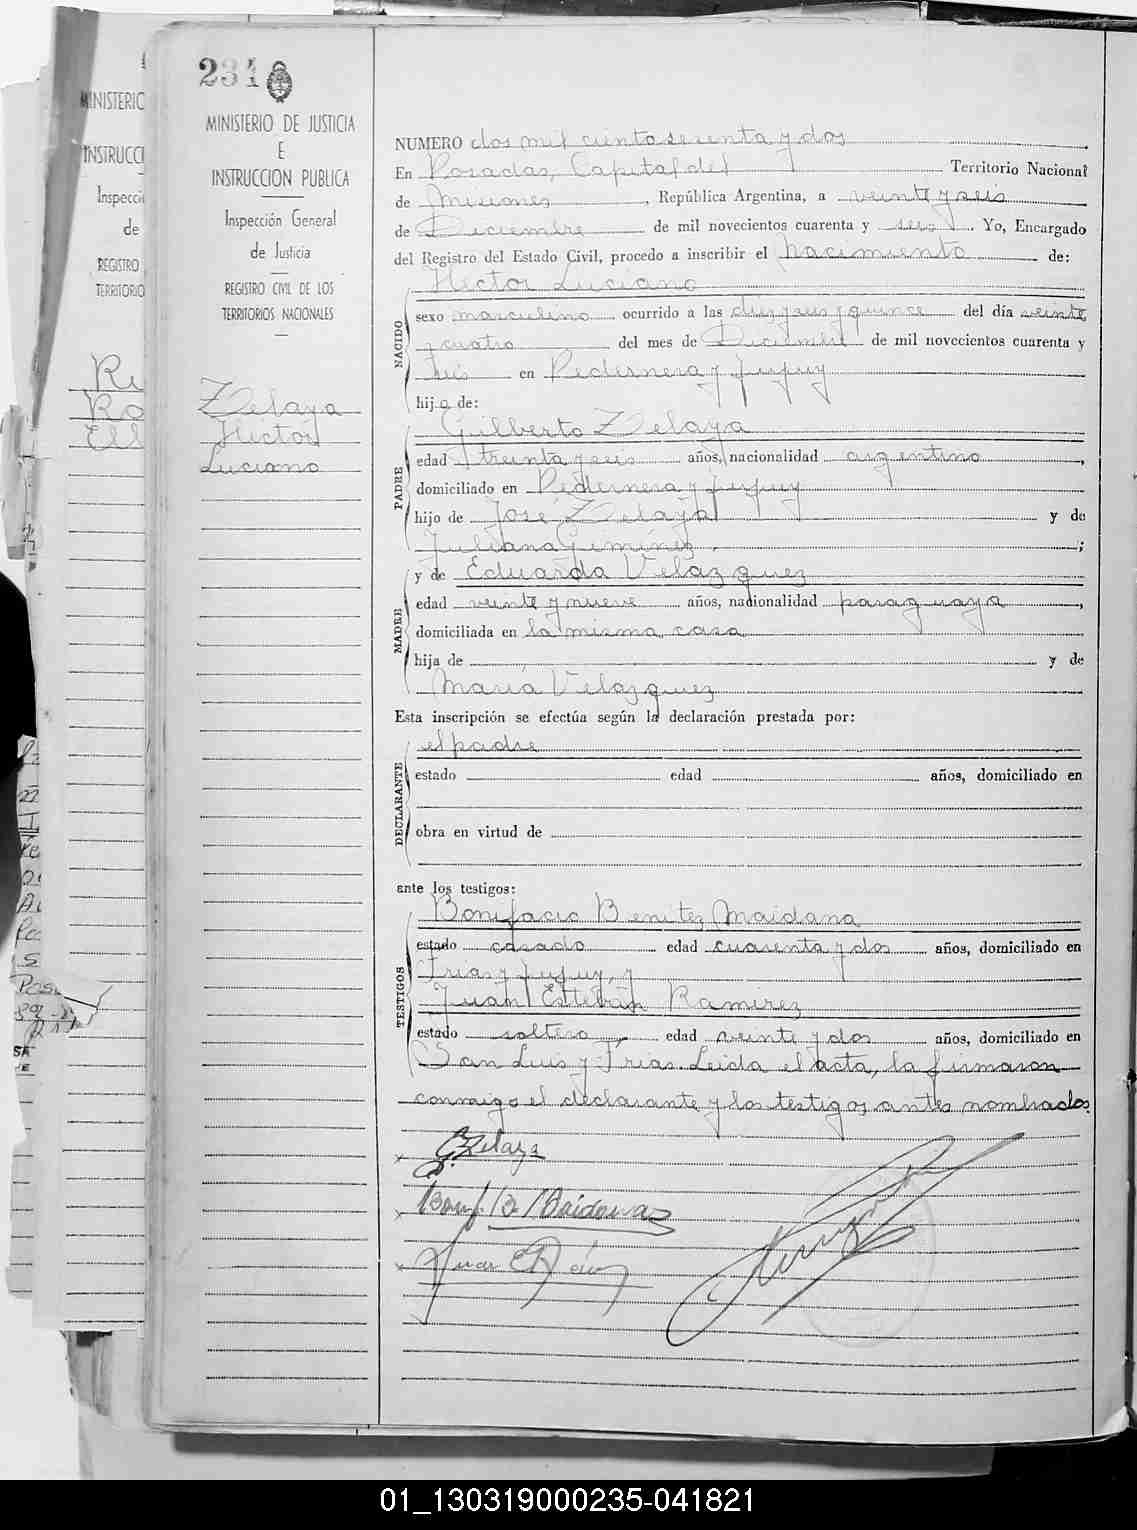 231
MINISTERIO DE JUSTICIA
E
INSTRUCCION PUBLICA
Inspección General
de Justicia
REGISTRO CIVIL DE LOS
TERRITORIOS NACIONALES
Zelaya
Héctor
Luciano
NUMERO dos mil ciento sesenta y dos
En Posadas, Capital del Territorio Nacional
de Misiones, República Argentina, a veinte y seis
de Diciembre de mil novecientos cuarenta y seis. Yo, Encargado
del Registro del Estado Civil, procedo a inscribir el nacimiento de:
Héctor Luciano
NACIDO
sexo masculino ocurrido a las diez y seis y quince del día veinte
y cuatro del mes de Diciembre de mil novecientos cuarenta y
seis en Pedernera y Jujuy
hijo de:
Gilberto Zelaya
PADRE
edad treinta y seis años, nacionalidad argentino,
domiciliado en Pedernera y Jujuy
hijo de José Zelaya y de
Juliana Giminez;
y de Eduarda Velazquez
MADRE
edad veinte y nueve años, nacionalidad paraguaya,
domiciliada en la misma casa
hija de y de
María Velazquez
Esta inscripción se efectúa según la declaración prestada por:
el padre
DECLARANTE
estado edad años, domiciliado en
obra en virtud de
ante los testigos:
Bonifacio Benitez Maidana
TESTIGOS
estado casado edad cuarenta y dos años, domiciliado en
Frias y Jujuy, y
Juan Esteban Ramirez
estado soltero edad veinte y dos años, domiciliado en
San Luis y Frias. Leida el acta, la firmaron
conmigo el declarante y los testigos antes nombrados.
G. Zelaya
Bonif. B. Maidana
Juan E.
MINISTERIO
INSTRUCCI
Inspecci
de
REGISTRO
TERRITORIO
01_130319000235-041821